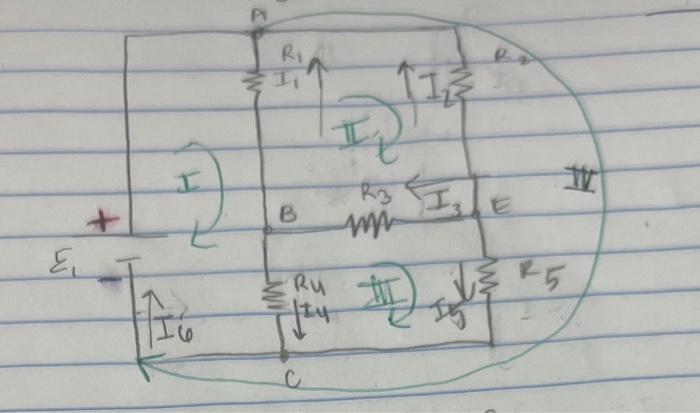 A
R1
I1
I2
R2
II
I
IV
R3
I3
B
E
+
ε1
-
R4
I4
III
I5
R5
I6
C